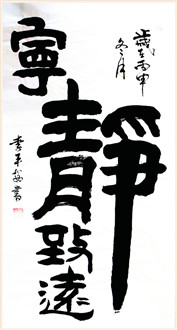 寧靜致遠
歲在丙申
冬月
李平安書